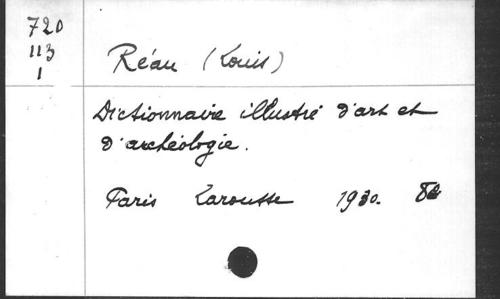 720
113
1
Réau (Louis)
Dictionnaire illustré d'art et
d'archéologie.
Paris Larousse 1930. 8º